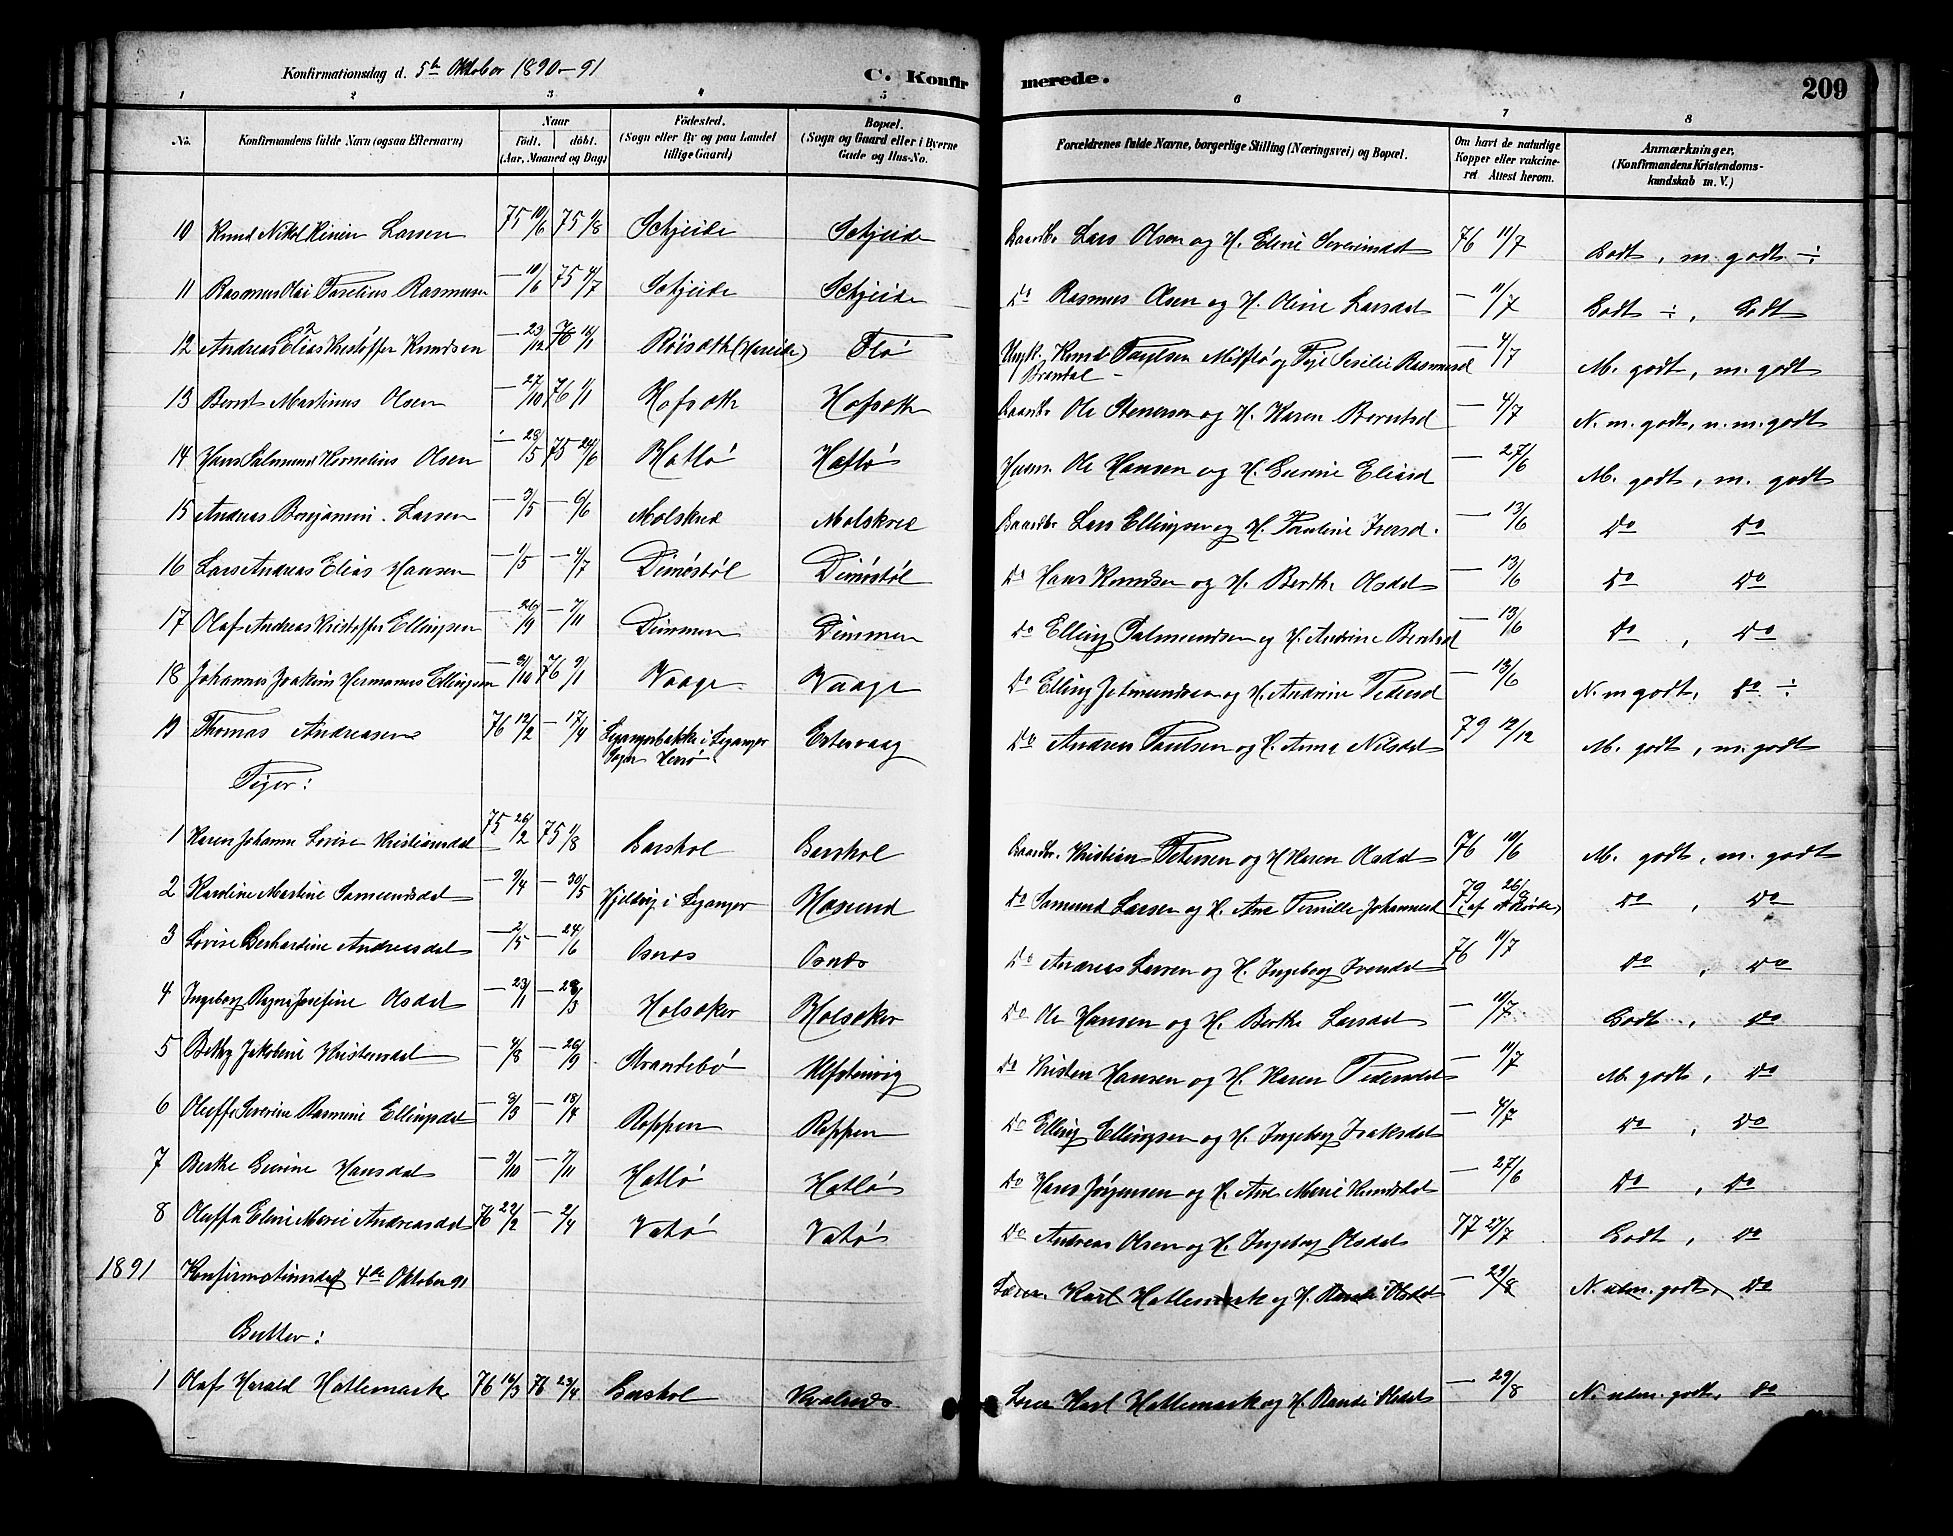 Konfirmationsdag d. 5te Oktober 1890-91
C. Konfirmerede.
209
1 2 3 4 5 6 7 8
No. Konfirmandens fulde Navn (ogsaa Efternavn) Naar Født. døbt. (Aar, Maaned og Dag) Fødested. (Sogn eller By og paa Landet tillige Gaard) Bopæl. (Sogn og Gaard eller i Byerne Gade og Hus-No. Forældrenes fulde Navne, borgerlige Stilling (Næringsvei) og Bopæl. Om havt de naturlige Kopper eller vakcineret Attest herom. Anmærkninger, (Konfirmandens Kristendomskundskab m. V.)
10 Knud Nikol Larsen 75 10/6 75 1/8 Schjeide Schjeide Gaardbr Lars Olsen og H. Eline Severinsdat 76 11/7 Godt, m. godt ÷
11 Rasmus Olai Rasmusen — 10/6 75 4/7 Schjeide Schjeide Do Rasmus Olsen og H. Oline Larsdat — 11/7 Godt ÷, Godt
12 Andreas Elias Kristoffer Knudsen — 23/12 76 16/1 Röiseth (Hareide) Flö Ungk. Knud Paulsen Brandal og Pige Sesilie Rasmusd — 4/7 M. godt, m. godt
13 Bernt Martinus Olsen — 27/10 76 1/1 Hofseth Hofseth Gaardbr Ole Stenersen og H. Karen Berntsd — 4/7 N. m. godt, n. m. godt
14 Hans Salmund Kornelius Olsen — 28/5 75 24/6 Hatlö Hatlö Husm. Ole Hansen og H. Severine Eliasd — 27/6 M. godt, m. godt
15 Andreas Benjamin Larsen — 3/5 — 6/6 Molskred Molskred Gaardbr Lars Ellingsen og H. Pauline Iversd. — 13/6 Do Do
16 Lars Andreas Elias Hansen — 1/5 — 4/7 Dimöstöl Dimöstöl Do Hans Knudsen og H. Berthe Olsdat — 13/6 Do Do
17 Olaf Andreas Kristoffer Ellingsen — 26/9 — 7/11 Dimmen Dimmen Do Elling Salmundsen og H. Andrine Berntsd — 13/6 Do, Do
18 Johannes Joakim Hermanus Ellingsen — 31/10 76 9/1 Vaage Vaage Do Elling Jetmundsen og H. Andrine Pedersd — 13/6 N. m godt, Do ÷
19 Thomas Andreasen 76 12/2 — 17/4 Legangerbakke i Leganger Sogn Herö Eltevaag Do Andreas Paulsen og H. Anna Nilsdat 79 12/12 M. godt, m. godt
Piger:
1 Karen Johanne Lovise Kristiansdat 75 26/2 75 1/8 Garshol Garshol Gaardbr. Kristian Petersen og H Karen Olsdat 76 10/6 M. godt, m. godt
2 Karoline Martine Samundsdat — 9/4 — 30/5 i Leganger Hasund Do Samund Larsen og H. Ane Pernille Johannesd 79 26/1 Do, Do
3 Lovise Berhardine Andreasdat — 2/5 — 24/6 Osnes Osnes Do Andreas Larsen og H. Ingeborg 76 11/7 Do, Do
4 Ingeborg Ragna Josefine Olsdat — 23/1 — 28/3 Holsæker Holsæker Do Ole Hansen og H. Berthe Larsdat — 10/7 Godt, Do
5 Bethy Jakobine Kristensdat — 4/8 — 26/9 Strandebö Ulfstenvig Do Kristen Hansen og H. Karen Pedersdat — 11/7 M. godt, Do
6 Oluffe Severine Rasmine Ellingsdat — 8/3 — 18/4 Roppen Roppen Do Elling Ellingsen og H. Ingeborg Isaksdat — 4/7 Do, Do
7 Berthe Severine Hansdat — 3/10 — 7/11 Hatlö Hatlö Do Hans Jörgensen og H. Ane Marie Knudsdat — 27/6 Do, Do
8 Oluffa Eline Marie Andreasdat 76 22/2 — 2/4 Vatö Vatö Do Andreas Olsen og H. Ingeborg Olsdat 77 27/7 Godt, Do
1891 Konfirmationsdag 4de Oktober 91 Lærer Karl Hatlemark og H. Rande Olsdat — 29/8 N. utm. godt, Do
Gutter:
1 Olaf Harald Hatlemark 76 16/3 76 23/4 Garshol Kvalnes Lærer Karl Hatlemark og H. Rande Olsdat — 29/8 N. utm. godt, Do